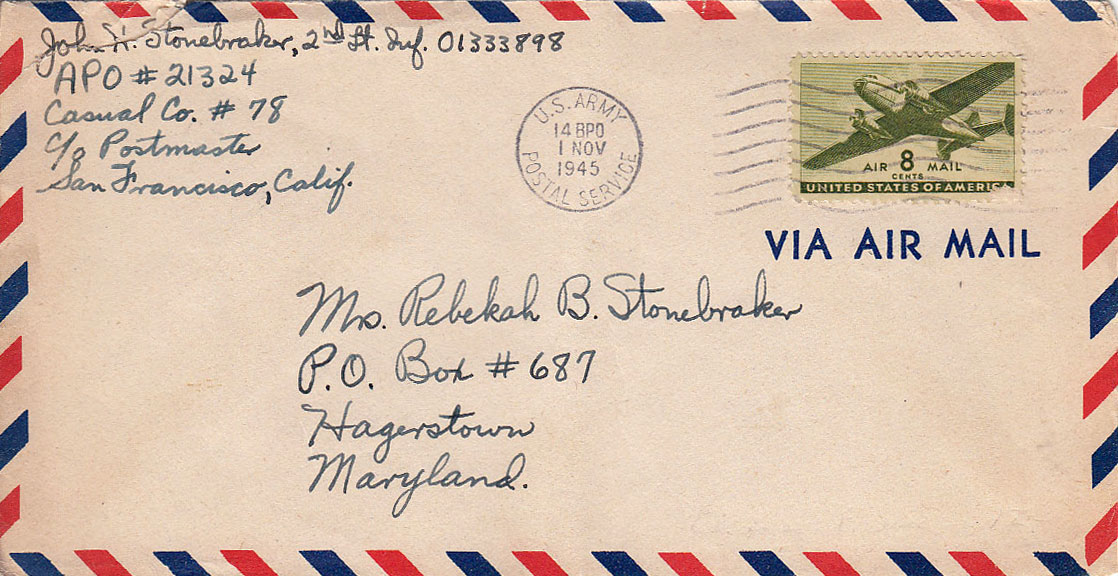 John H. Stonebraker, 2nd Lt. Inf. 01333898
APO # 21324
Casual Co. # 78
c/o Postmaster
San Francisco, Calif.
U.S. ARMY
14 BPO
1 NOV
1945
POSTAL SERVICE
AIR 8 MAIL
CENTS
UNITED STATES OF AMERICA
VIA AIR MAIL
Mrs. Rebekah B. Stonebraker
P.O. Box # 687
Hagerstown
Maryland.